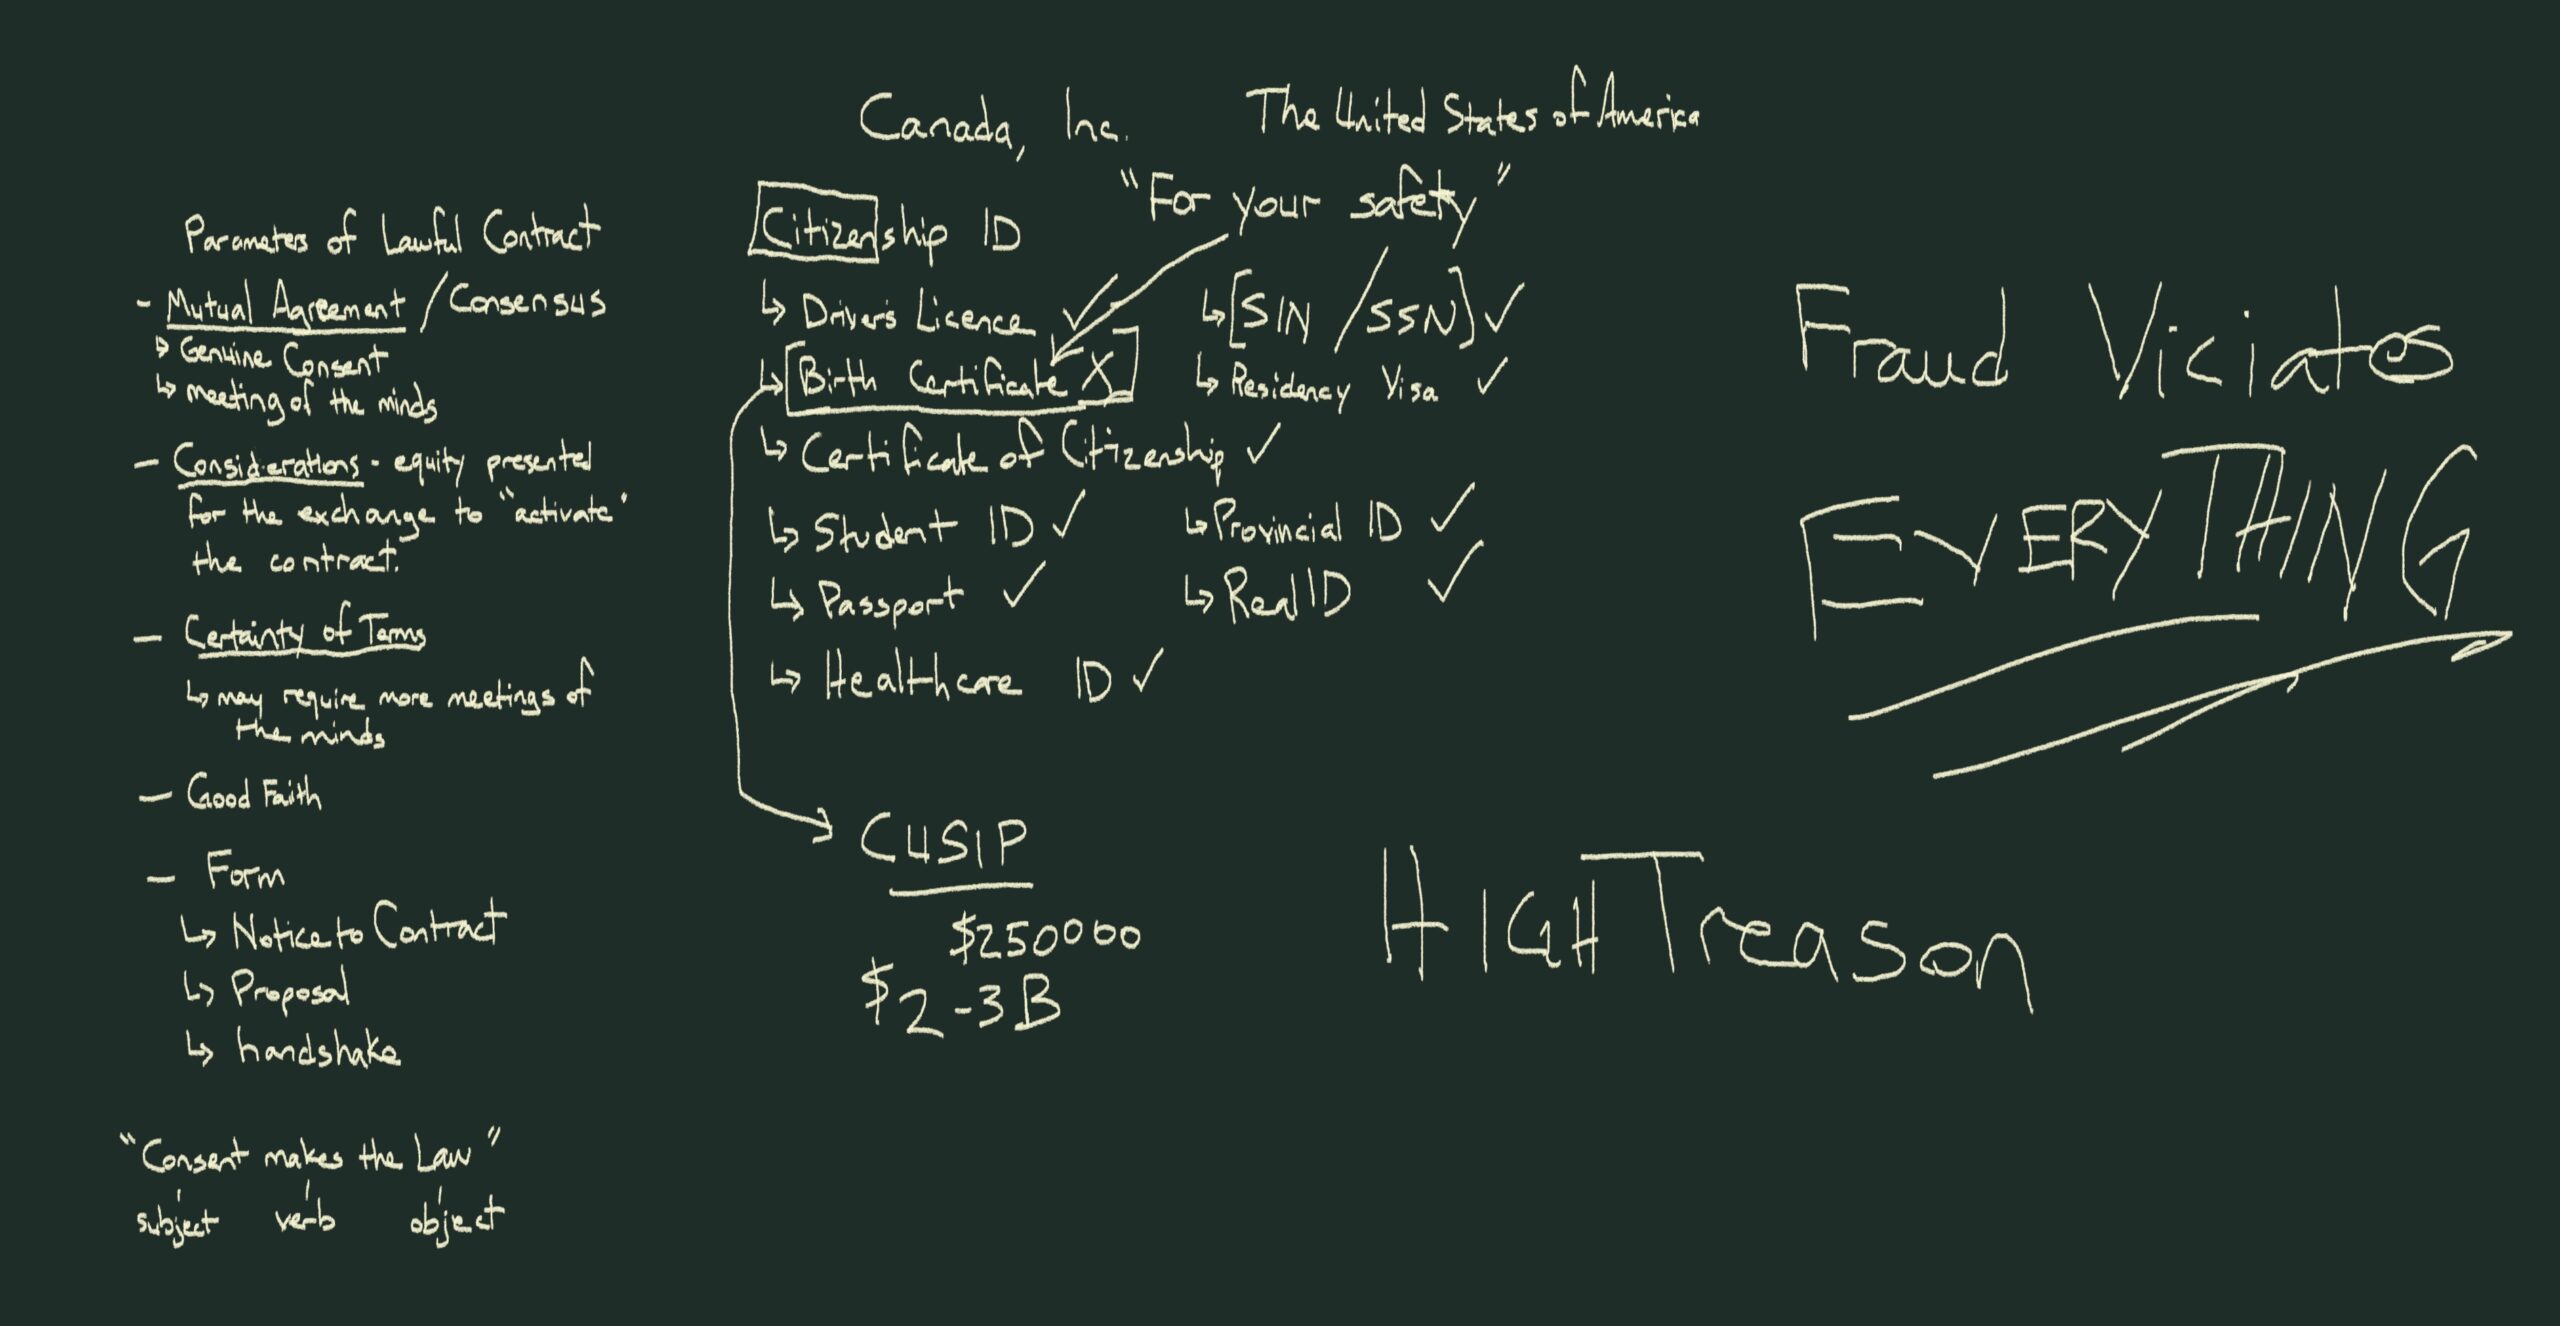 Canada, Inc. The United States of America
"For your safety"
Parameters of Lawful Contract
- Mutual Agreement / Consensus
↳ Genuine Consent
↳ meeting of the minds
- Considerations - equity presented
for the exchange to "activate"
the contract.
- Certainty of Terms
↳ may require more meetings of
the minds
- Good Faith
- Form
↳ Notice to Contract
↳ Proposal
↳ handshake
"Consent makes the Law"
subject verb object
Citizenship ID
↳ Drivers Licence ✓
↳ [SIN / SSN] ✓
↳ Birth Certificate X
↳ Residency Visa ✓
↳ Certificate of Citizenship ✓
↳ Student ID ✓
↳ Provincial ID ✓
↳ Passport ✓
↳ Real ID ✓
↳ Healthcare ID ✓
CUSIP
$250000
$2-3B
Fraud Viciates
EVERYTHING
HIGH Treason